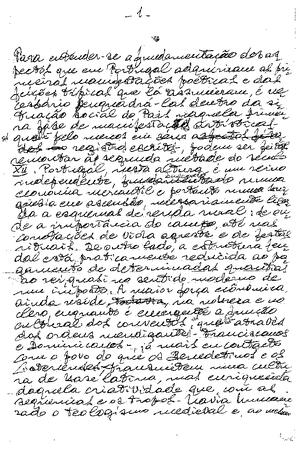 - 1 -
Para entender-se a fundamentação dos as-
pectos que em Portugal adquiriram as pri-
meiras manifestações poéticas e das
feições típicas que lá assumiram, é ne-
cessário enquadrá-las dentro da si-
tuação social do País naquela primei-
ra fase de manifestações artísticas
que pelo menos em seus
registros escritos, podem ser
remontar à segunda metade do século
XII. Portugal, nesta altura, é um reino
independente, numa
economia mercantil e portanto numa bur-
guesia em ascensão, necessariamente liga-
da a esquemas de renda rural: de on-
de a importância do campo, até nas
conotações de vida agreste e de
rituais. De outro lado, a estrutura feu-
dal está praticamente reduzida ao pa-
gamento de determinadas quantias
ao rei, quasi no sentido moderno de
um imposto. A maior força econômica,
ainda reside, na nobreza e no
clero, enquanto é emergente a função
cultural dos conventos, que através
das ordens mendigantes - Franciscanos
e Dominicanos - já mais em contacto
com o povo do que os Benedetinos e os
transmitem uma cultu-
ra de base latina, mas enriquecida
daquela criatividade que, com as
sequências e os tropos, havia
zado o teologismo medieval e, ao mesmo